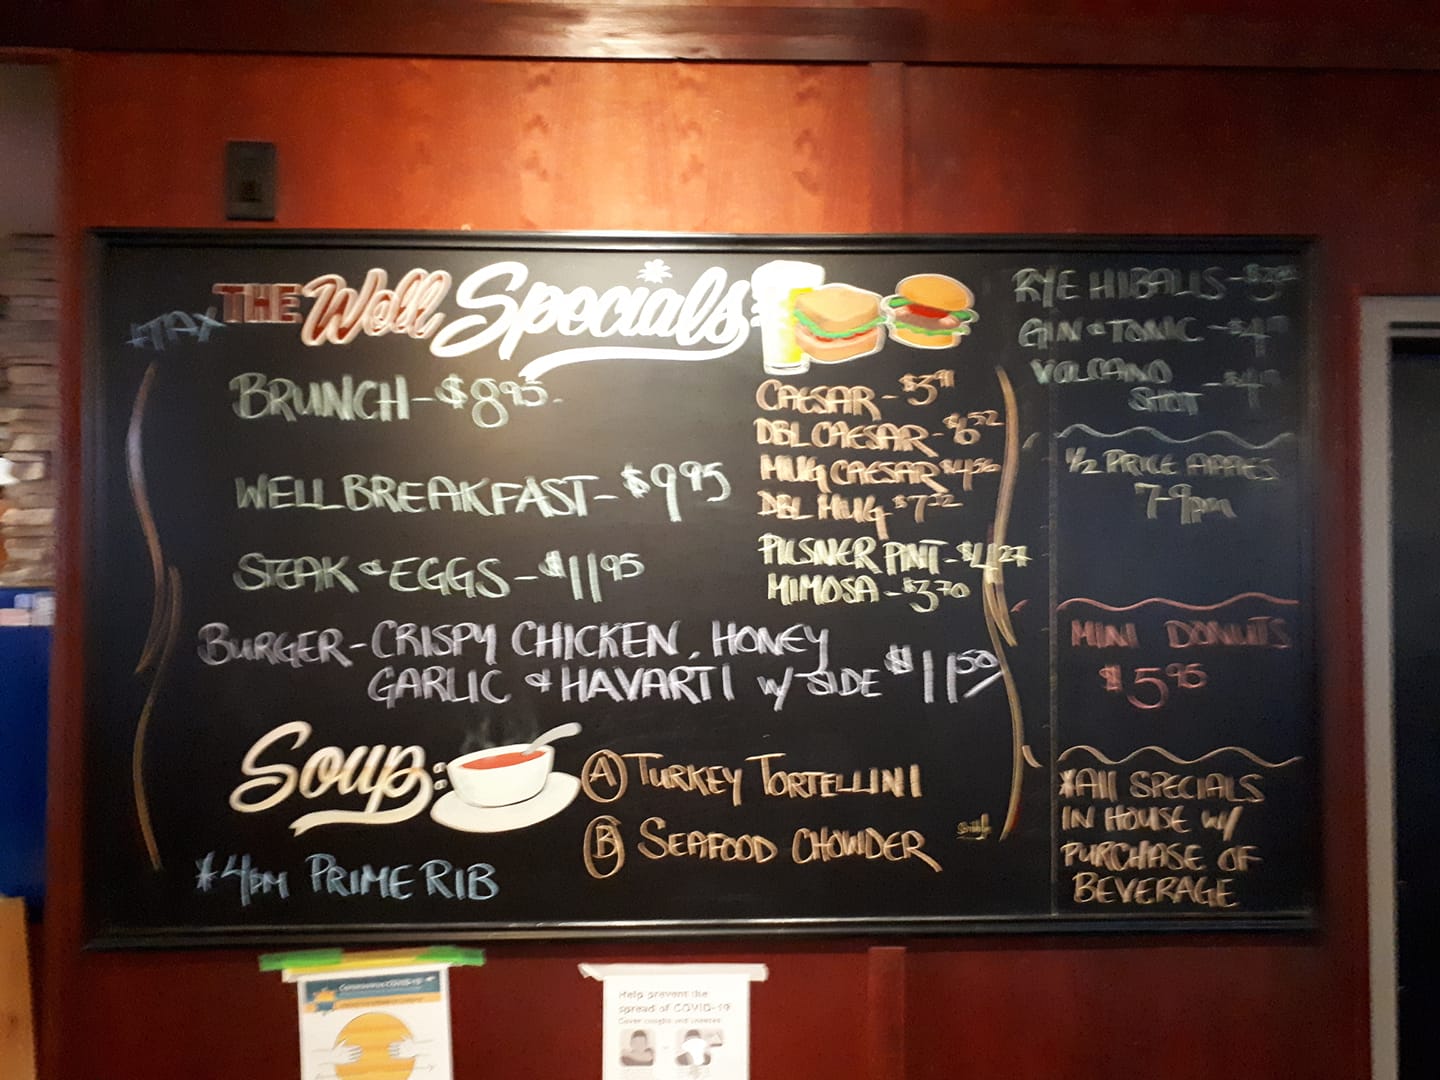 THE Well Specials:
+TAX
BRUNCH - $8.95
WELL BREAKFAST - $9.95
STEAK & EGGS - $11.95
CAESAR - $3.91
DBL CAESAR - $6.52
MUG CAESAR $4.56
DBL MUG $7.32
PILSNER PINT - $4.27
MIMOSA - $3.70
BURGER - CRISPY CHICKEN, HONEY
GARLIC & HAVARTI w/ SIDE $11.50
Soup:
A TURKEY TORTELLINI
B SEAFOOD CHOWDER
*4PM PRIME RIB
RYE HIBALLS -
GIN & TONIC -
VOLCANO
SHOT -
1/2 PRICE APPIES
7-9pm
MINI DONUTS
$5.95
*All SPECIALS
IN HOUSE w/
PURCHASE OF
BEVERAGE
Coronavirus COVID-19
Help prevent the
spread of COVID-19
Cover coughs and sneezes